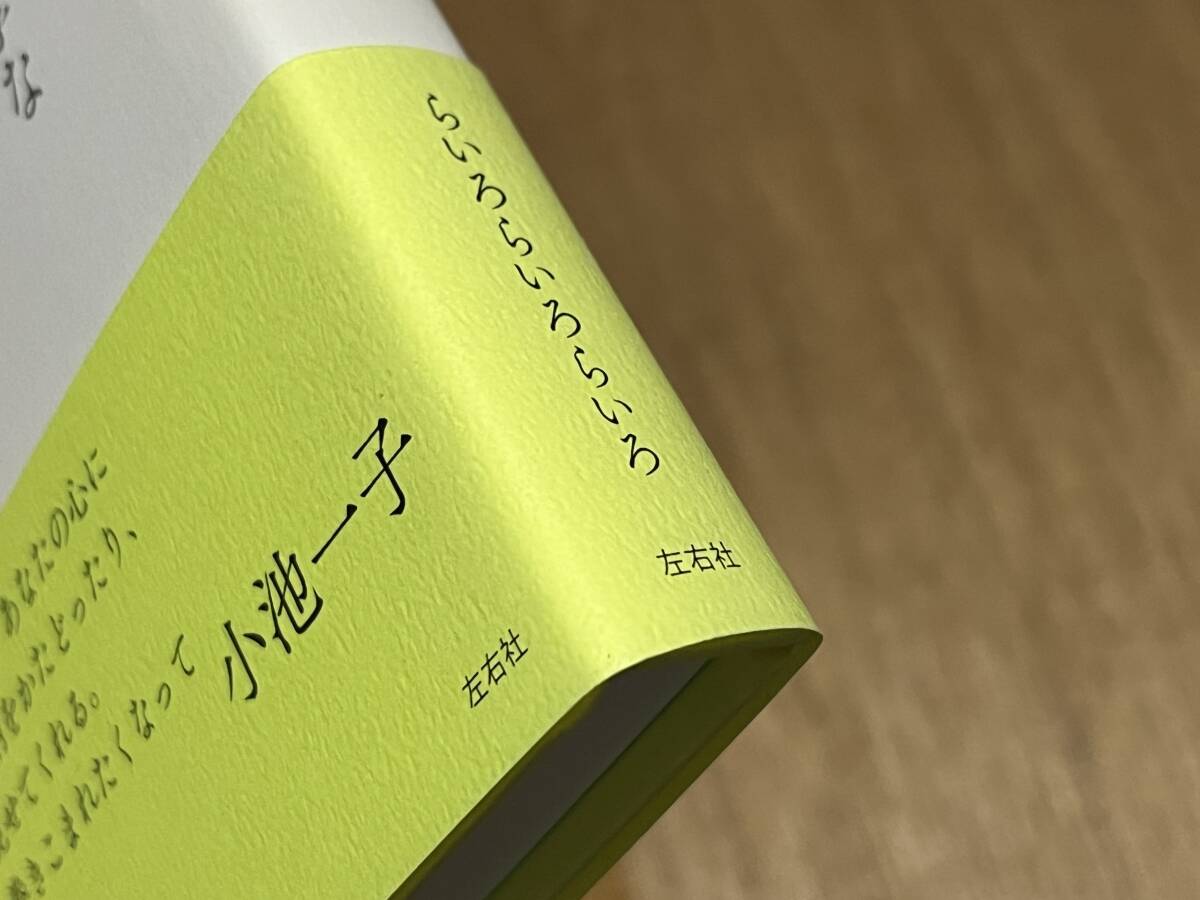 らいろらいろらいろ
左右社
小池一子
左右社
あなたの心に
をかたどったり、
せてくれる。
きこまれたくなって
な